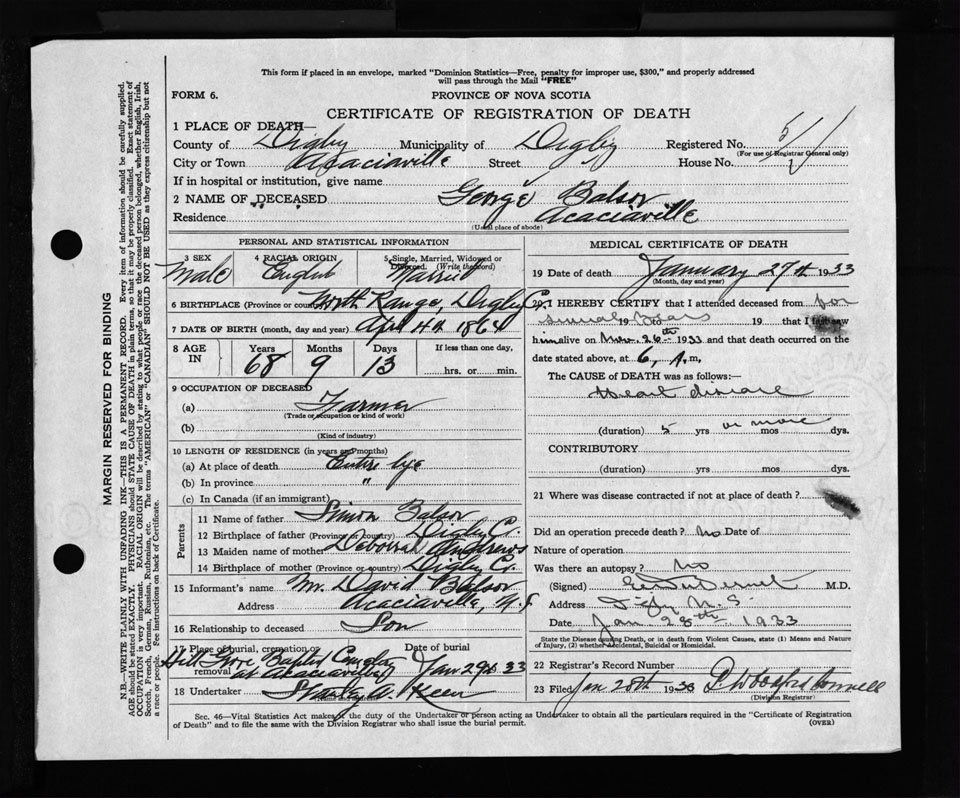 This form if placed in an envelope, marked "Dominion Statistics—Free, penalty for improper use, $300," and properly addressed
will pass through the Mail "FREE"
FORM 6.
PROVINCE OF NOVA SCOTIA
CERTIFICATE OF REGISTRATION OF DEATH
1 PLACE OF DEATH—
County of Digby Municipality of Digby Registered No. 51
(For use of Registrar General only)
City or Town Acaciaville Street House No.
If in hospital or institution, give name
2 NAME OF DECEASED George Balsor
Residence Acaciaville
(Usual place of abode)
PERSONAL AND STATISTICAL INFORMATION
3 SEX 4 RACIAL ORIGIN 5 Single, Married, Widowed or
Divorced. (Write the word)
Male English Married
6 BIRTHPLACE (Province or country) North Range, Digby Co.
7 DATE OF BIRTH (month, day and year) April 4th 1864
8 AGE IN Years Months Days If less than one day,
68 9 13 hrs. or min.
9 OCCUPATION OF DECEASED
(a) Farmer
(Trade or occupation or kind of work)
(b)
(Kind of industry)
10 LENGTH OF RESIDENCE (in years and months)
(a) At place of death Entire life
(b) In province "
(c) In Canada (if an immigrant)
Parents
11 Name of father Simon Balsor
12 Birthplace of father (Province or country) Digby Co.
13 Maiden name of mother Deborah Andrews
14 Birthplace of mother (Province or country) Digby Co.
15 Informant's name Mr. David Balsor
Address Acaciaville, N.S.
16 Relationship to deceased Son
17 Place of burial, cremation or removal Date of burial
Hill Grove Baptist
at Acaciaville Jan 29th 33
18 Undertaker Stanley A. Keen
MEDICAL CERTIFICATE OF DEATH
19 Date of death January 27th 1933
(Month, day and year)
20. I HEREBY CERTIFY that I attended deceased from for
several years 19 to 19 that I last saw
him alive on 26th 1933 and that death occurred on the
date stated above, at 6, A.m.
The CAUSE of DEATH was as follows:—
Heart disease
(duration) 5 yrs or more mos dys.
CONTRIBUTORY
(duration) yrs mos dys.
21 Where was disease contracted if not at place of death?
Did an operation precede death? No Date of
Nature of operation
Was there an autopsy? No
(Signed) M.D.
Address Digby N.S.
Date Jan 28th 1933
State the Disease causing Death, or in death from Violent Causes, state (1) Means and Nature
of Injury, (2) whether Accidental, Suicidal or Homicidal.
22 Registrar's Record Number
23 Filed Jan 28th 1933
(Division Registrar)
Sec. 46—Vital Statistics Act makes it the duty of the Undertaker or person acting as Undertaker to obtain all the particulars required in the "Certificate of Registration
of Death" and to file the same with the Division Registrar who shall issue the burial permit.
(OVER)
MARGIN RESERVED FOR BINDING
N.B.—WRITE PLAINLY WITH UNFADING INK—THIS IS A PERMANENT RECORD. Every item of information should be carefully supplied.
AGE should be stated EXACTLY. PHYSICIANS should STATE CAUSE OF DEATH in plain terms, so that it may be properly classified. Exact statement of
OCCUPATION is very important. RACIAL ORIGIN will be described by stating to what people or race the deceased person belonged, whether English, Irish,
Scotch, French, German, Russian, Ruthenian, etc. The terms "AMERICAN" or "CANADIAN" SHOULD NOT BE USED as they express citizenship but not
a race or people. See instructions on back of Certificate.